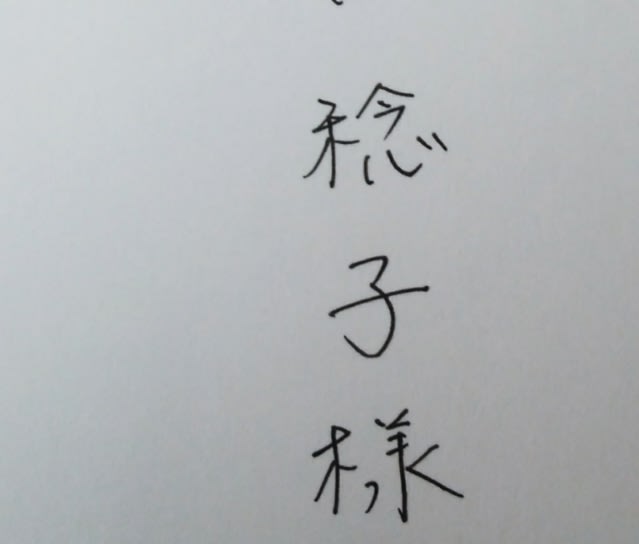 稔子様